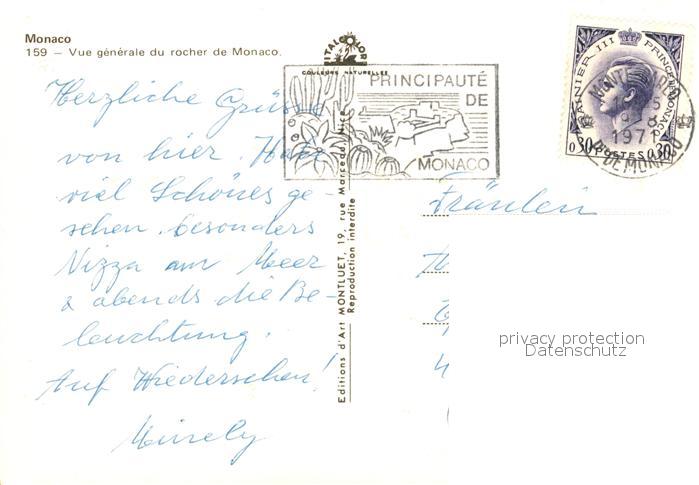 Monaco
159 — Vue générale du rocher de Monaco.
COULEURS NATURELLES
PRINCIPAUTÉ
DE
MONACO
RAINIER III PRINCE DE MONACO
MONTE-CARLO
197
Pté DE MONACO
0,30 POSTES 0,30
Herzliche Grüsse
von hier. Habe
viel Schönes ge-
sehen, besonders
Nizza am Meer
& abends die Be-
leuchtung.
Auf Wiedersehen!
Editions d'Art MONTLUET, 19, rue Marceau, Nice
Reproduction interdite
Fräulein
privacy protection
Datenschutz